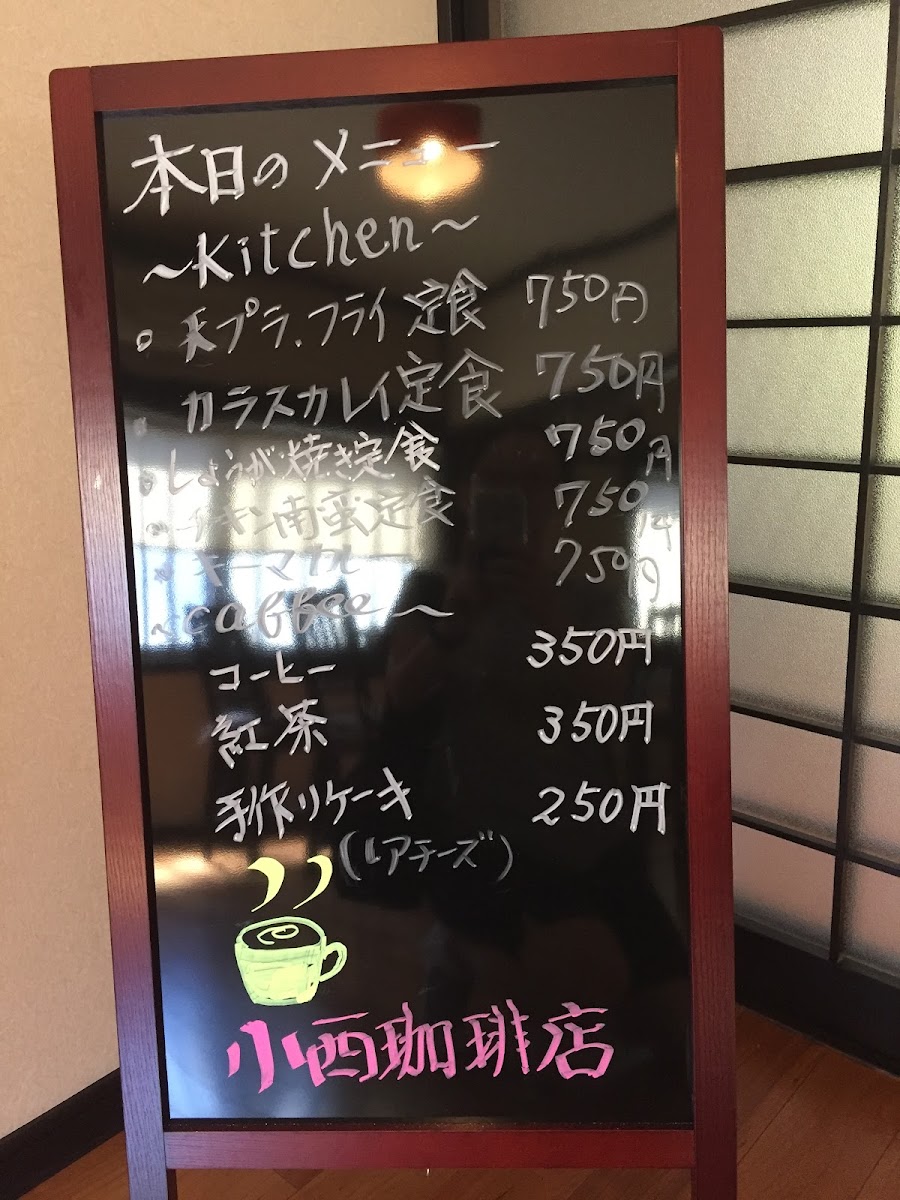 本日のメニュー
～Kitchen～
。天プラ.フライ定食 750円
。カラスカレイ定食 750円
。しょうが焼き定食 750円
。チキン南蛮定食 750円
。キーマカレー 750円
～caffee～
コーヒー 350円
紅茶 350円
手作りケーキ 250円
(レアチーズ)
小西珈琲店